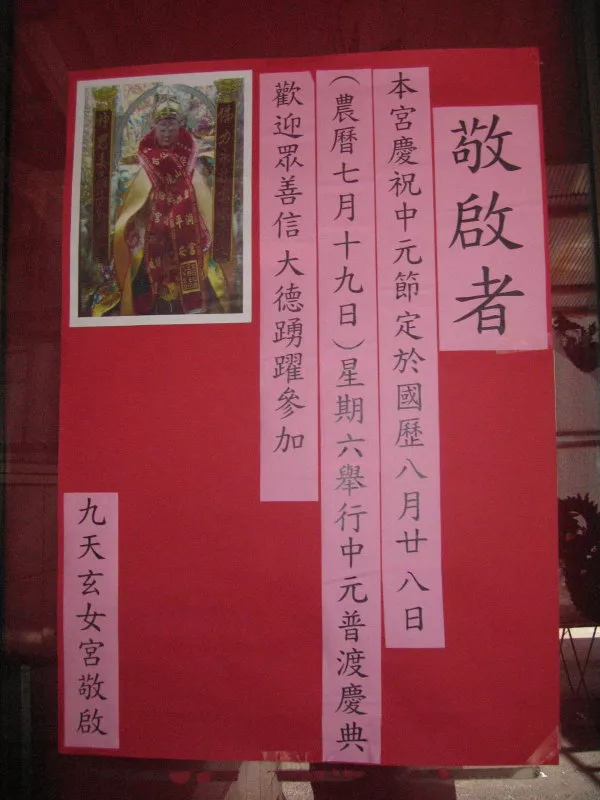 敬啟者
本宮慶祝中元節定於國歷八月廿八日
(農曆七月十九日)星期六舉行中元普渡慶典
歡迎眾善信大德踴躍參加
九天玄女宮敬啟